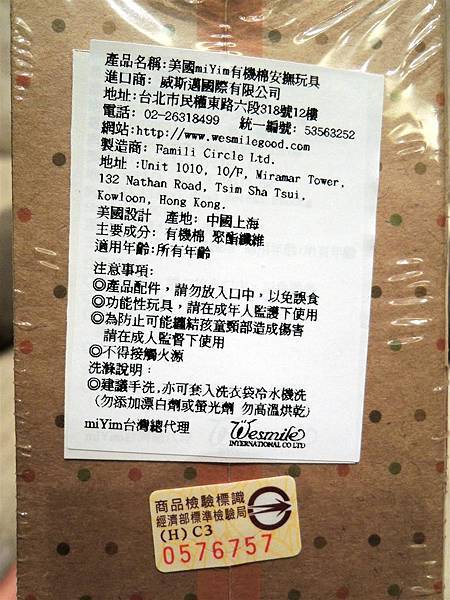 產品名稱:美國miYim有機棉安撫玩具
進口商: 威斯邁國際有限公司
地址:台北市民權東路六段318號12樓
電話: 02-26318499 統一編號: 53563252
網站:http://www.wesmilegood.com
製造商: Famili Circle Ltd.
地址 :Unit 1010, 10/F, Miramar Tower,
132 Nathan Road, Tsim Sha Tsui,
Kowloon, Hong Kong.
美國設計 產地: 中國上海
主要成分: 有機棉 聚酯纖維
適用年齡:所有年齡
注意事項:
◎產品配件，請勿放入口中，以免誤食
◎功能性玩具，請在成年人監護下使用
◎為防止可能纏結孩童頸部造成傷害
請在成人監督下使用
◎不得接觸火源
洗滌說明：
◎建議手洗,亦可套入洗衣袋冷水機洗
(勿添加漂白劑或螢光劑 勿高溫烘乾)
miYim台灣總代理
Wesmile
INTERNATIONAL CO LTD
商品檢驗標識
經濟部標準檢驗局
(H)C3
0576757